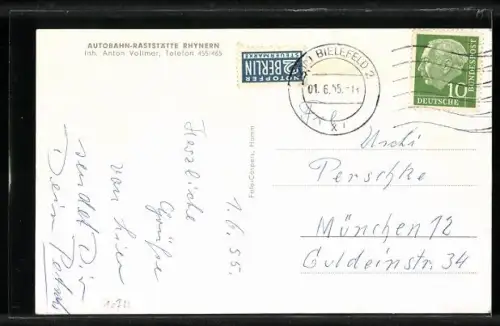 AUTOBAHN-RASTSTÄTTE RHYNERN
Inh. Anton Vollmer, Telefon 455/465
NOTOPFER
2 BERLIN
STEUERMARKE
BIELEFELD 2
01. 6. 55.
10
DEUTSCHE
BUNDESPOST
1.6.55.
Herzliche
Grüße
von hier
sendet Dir
Dein
Foto-Caspers, Hamm
Uschi
Perschke
München 12
Guldeinstr. 34